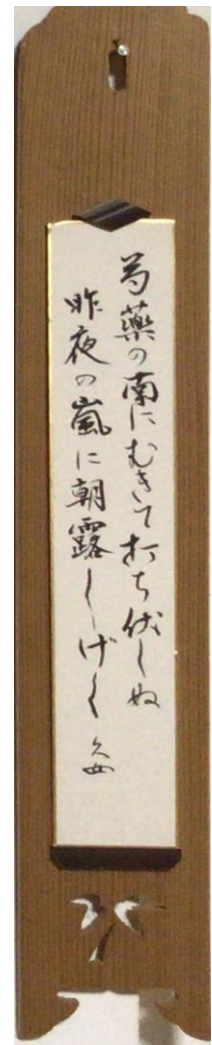 芍薬の南にむきて打ち伏しぬ
昨夜の嵐に朝露しげく 久女